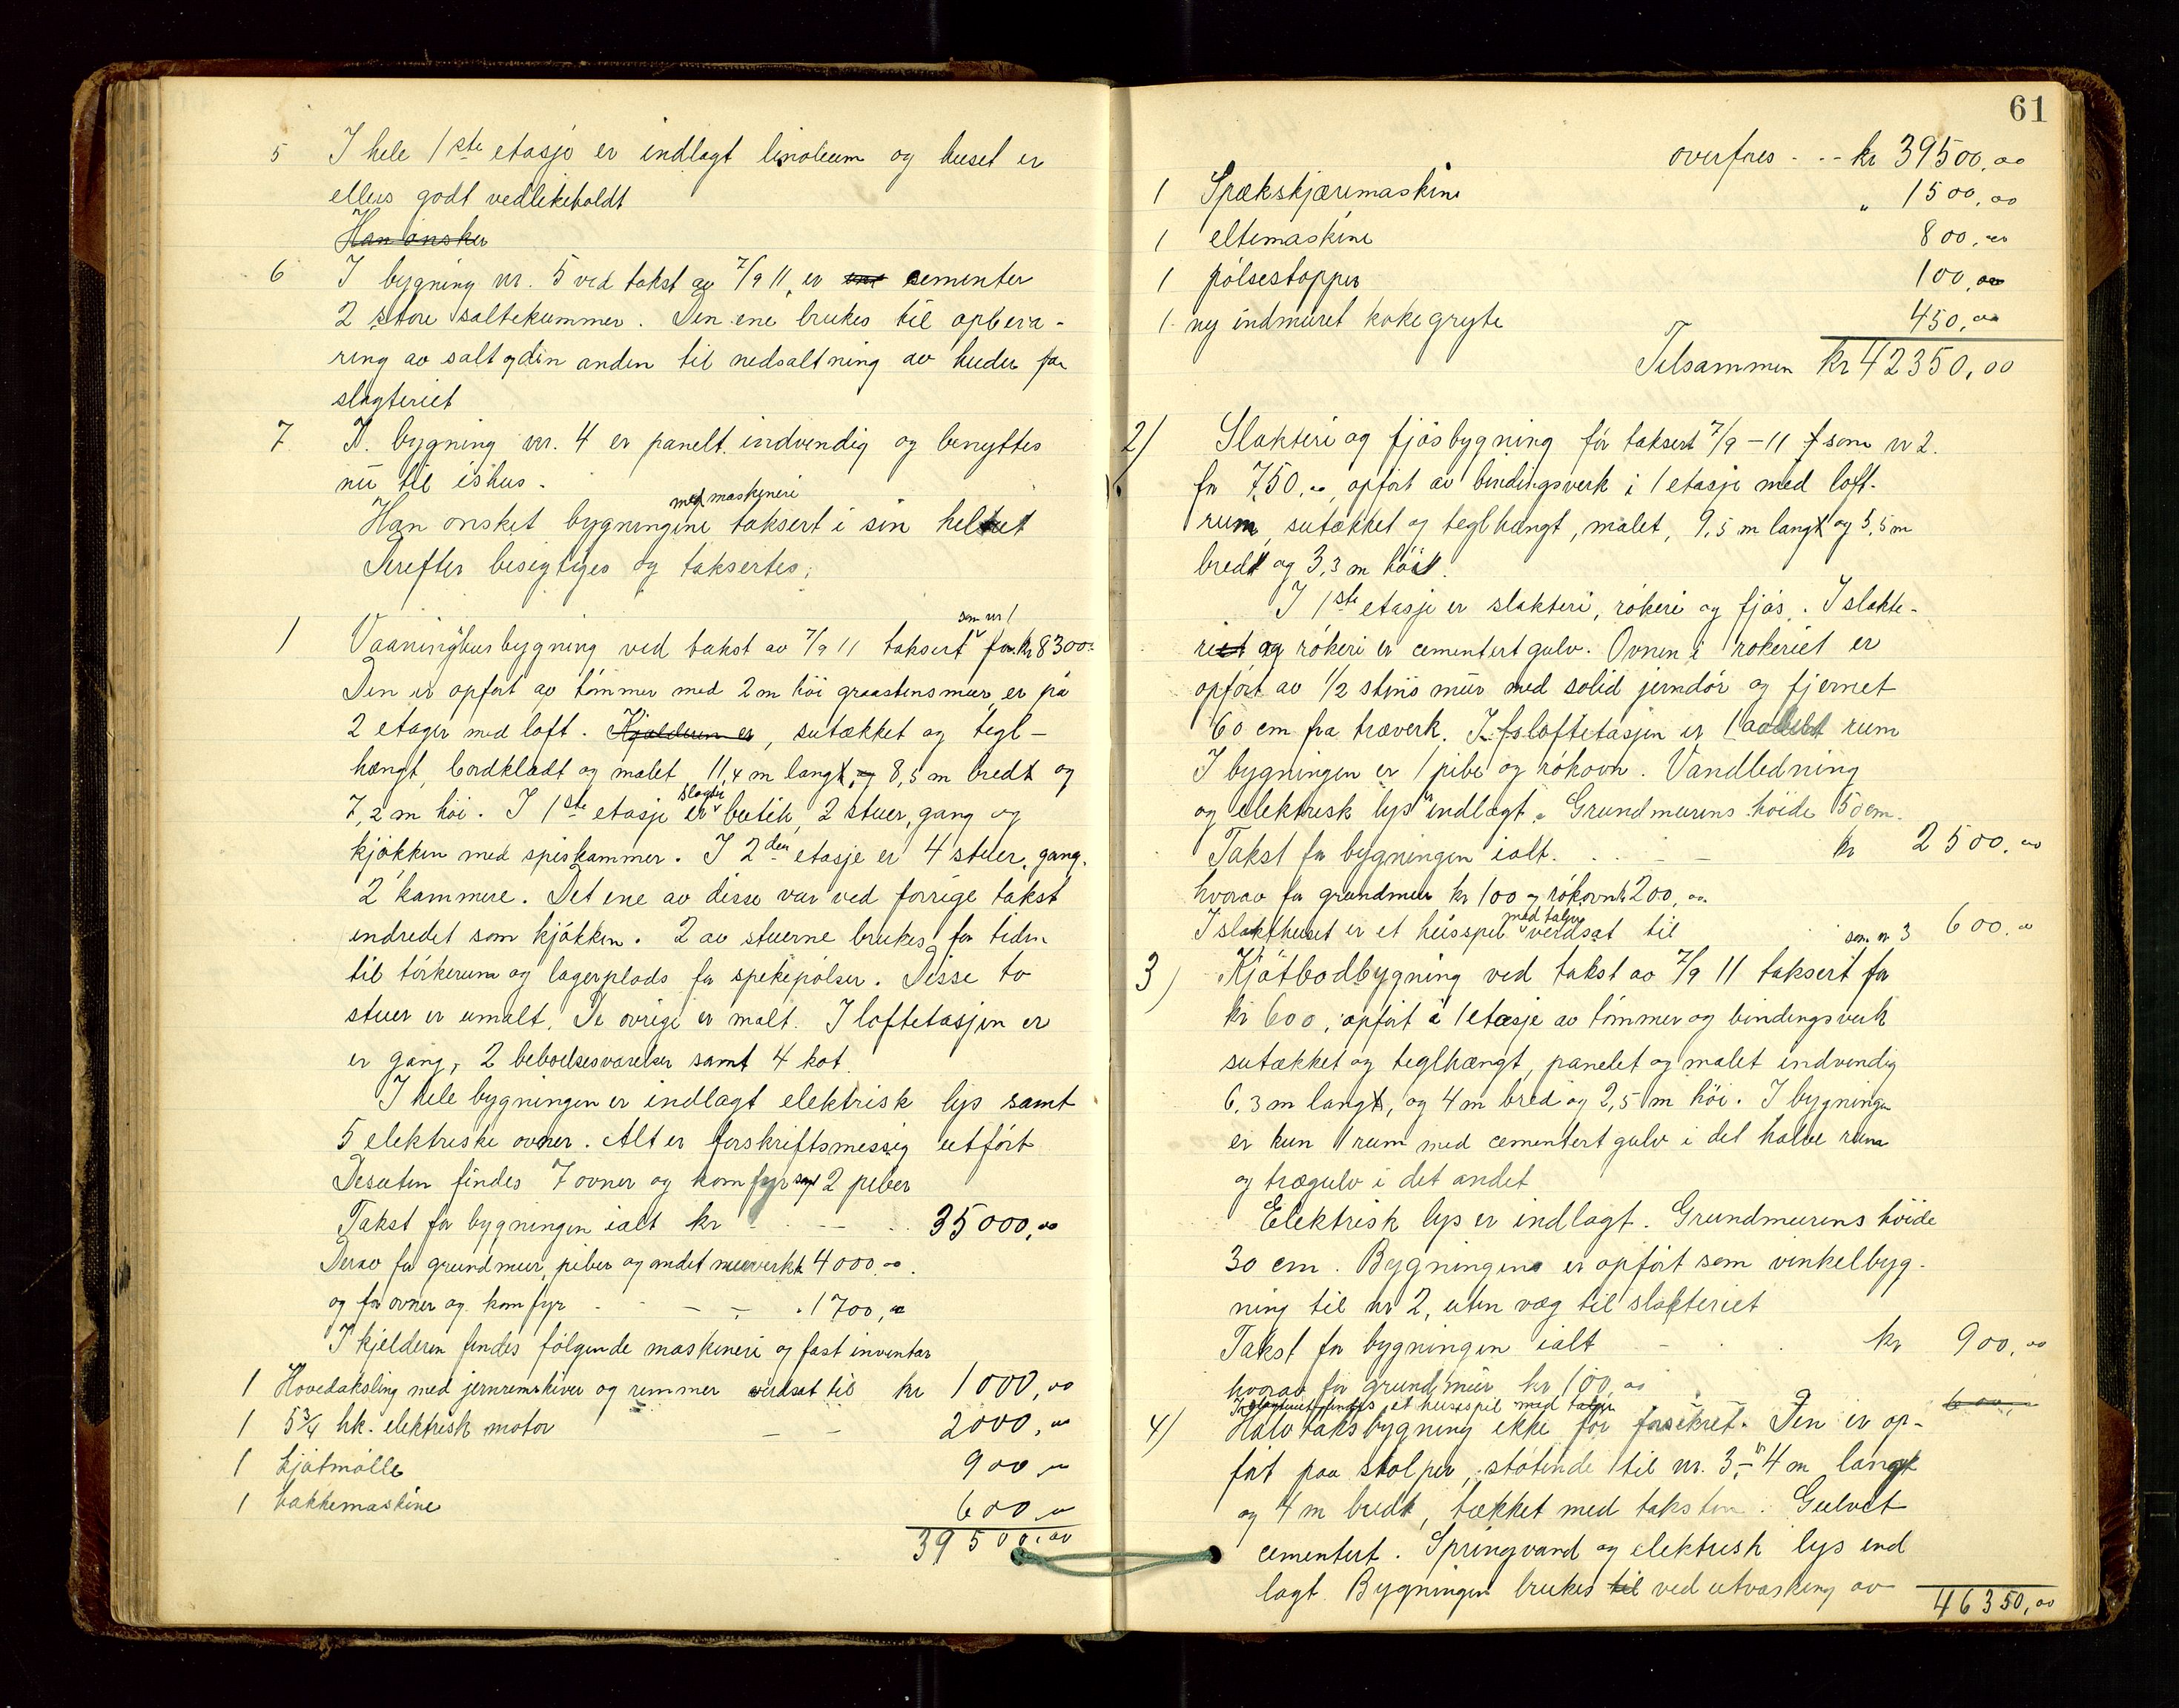 5 I hele 1ste etasje er indlagt linoleum og huset er
ellers godt vedlikeholdt
Han ønsker
6 I bygning nr. 5 ved takst av 7/9 11, er cementer
2 store saltekummer. Den ene brukes til opbeva-
ring av salt og den anden til nedsaltning av huder fra
slagteriet
7 bygning nr. 4 er panelt indvendig og benyttes
nu til ishus.
med maskineri
Han ønsket bygningene taksert i sin helhet
Derefter besigtiges og taksertes;
som nr 1
1 Vaaningshusbygning ved takst av 7/9 11 taksert for kr 8300.-
Den er opført av tømmer med 2 m høi graastensmur, er på
2 etager med loft. Kjælderen er, sutækket og tegl-
hængt, bordklædt og malet, 11,4 m langt, og 8,5 m bredt og
slagter
7,2 m høi. I 1ste etasje er butik, 2 stuer, gang og
kjøkken med spiskammer. I 2den etasje er 4 stuer, gang,
2 kammere. Det ene av disse var ved forrige takst
indredet som kjøkken. 2 av stuerne brukes for tiden
til tørkerum og lagerplads for spekepølser. Disse to
stuer er umalt. De øvrige er malt. I loftetasjen er
er gang, 2 beboelsesværelser samt 4 kot.
I hele bygningen er indlagt elektrisk lys samt
5 elektriske ovner. Alt er forskriftsmessig utført
Desuten findes 7 ovner og komfyr samt 2 piber
Takst for bygningen ialt kr 35000,00
Derav for grundmur, piber og andet murverk kr 4000.00.
og for ovner og komfyr - - - " 1700,00
I kjelderen findes følgende maskineri og fast inventar
1 Hovedaksling med jernremskiver og remmer verdsat til kr 1000,00
1 5 3/4 hk. elektrisk motor - - 2000,00
1 kjøtmølle 900,00
1 hakkemaskine 600,00
39500,00
61
overføres - - - kr 39500,00
1 Spækskjæremaskine " 1500,00
1 eltemaskine 800,00
1 pølsestopper 100,00
1 ny indmuret kokegryte 450,00
Tilsammen kr 42350,00
2) Slakteri og fjøsbygning før taksert 7/9 - 11 som nr 2.
for 750.00, opført av bindingsverk i 1 etasje med loft-
rum, sutækket og teglhængt, malet, 9,5 m langt og 5,5 m
bredt og 3,3 m høit.
I 1ste etasje er slakteri, røkeri og fjøs. I slakte-
riet og røkeri er cementert gulv. Ovnen i røkeriet er
opført av 1/2 stens mur med solid jerndør og fjernet
60 cm fra træverk. I loftetasjen er 1 avdelt rum
I bygningen er 1 pibe og røkovn. Vandledning
og elektrisk lys er indlagt. Grundmurens høide 50 cm.
Takst for bygningen ialt. - - kr 2500.00
hvorav for grundmur kr 100 og røkovn kr 200,00
med talje
I slakthuset er et heisspil verdsat til 600.00
som nr 3
3) Kjøtbodbygning ved takst av 7/9 11 taksert for
kr 600, opført i 1 etasje av tømmer og bindingsverk
sutækket og teglhængt, panelet og malet indvendig
6,3 m langt, og 4 m bred og 2,5 m høi. I bygningen
er kun 1 rum med cementert gulv i det halve rum
og trægulv i det andet
Elektrisk lys er indlagt. Grundmurens høide
30 cm. Bygningen er opført som vinkelbyg-
ning til nr 2, uten væg til slakteriet
Takst for bygningen ialt - kr 900,00
hvorav for grundmur kr 100,00
I slagteriet findes et heisespil med talje 600,-
4) Halvtaksbygning ikke før forsikret. Den er op-
ført paa stolper, støtende til nr. 3,- 4 m langt
og 4 m bredt, tækket med taksten. Gulvet
cementert. Springvand og elektrisk lys ind
lagt. Bygningen brukes til ved utvasking av
46350,00